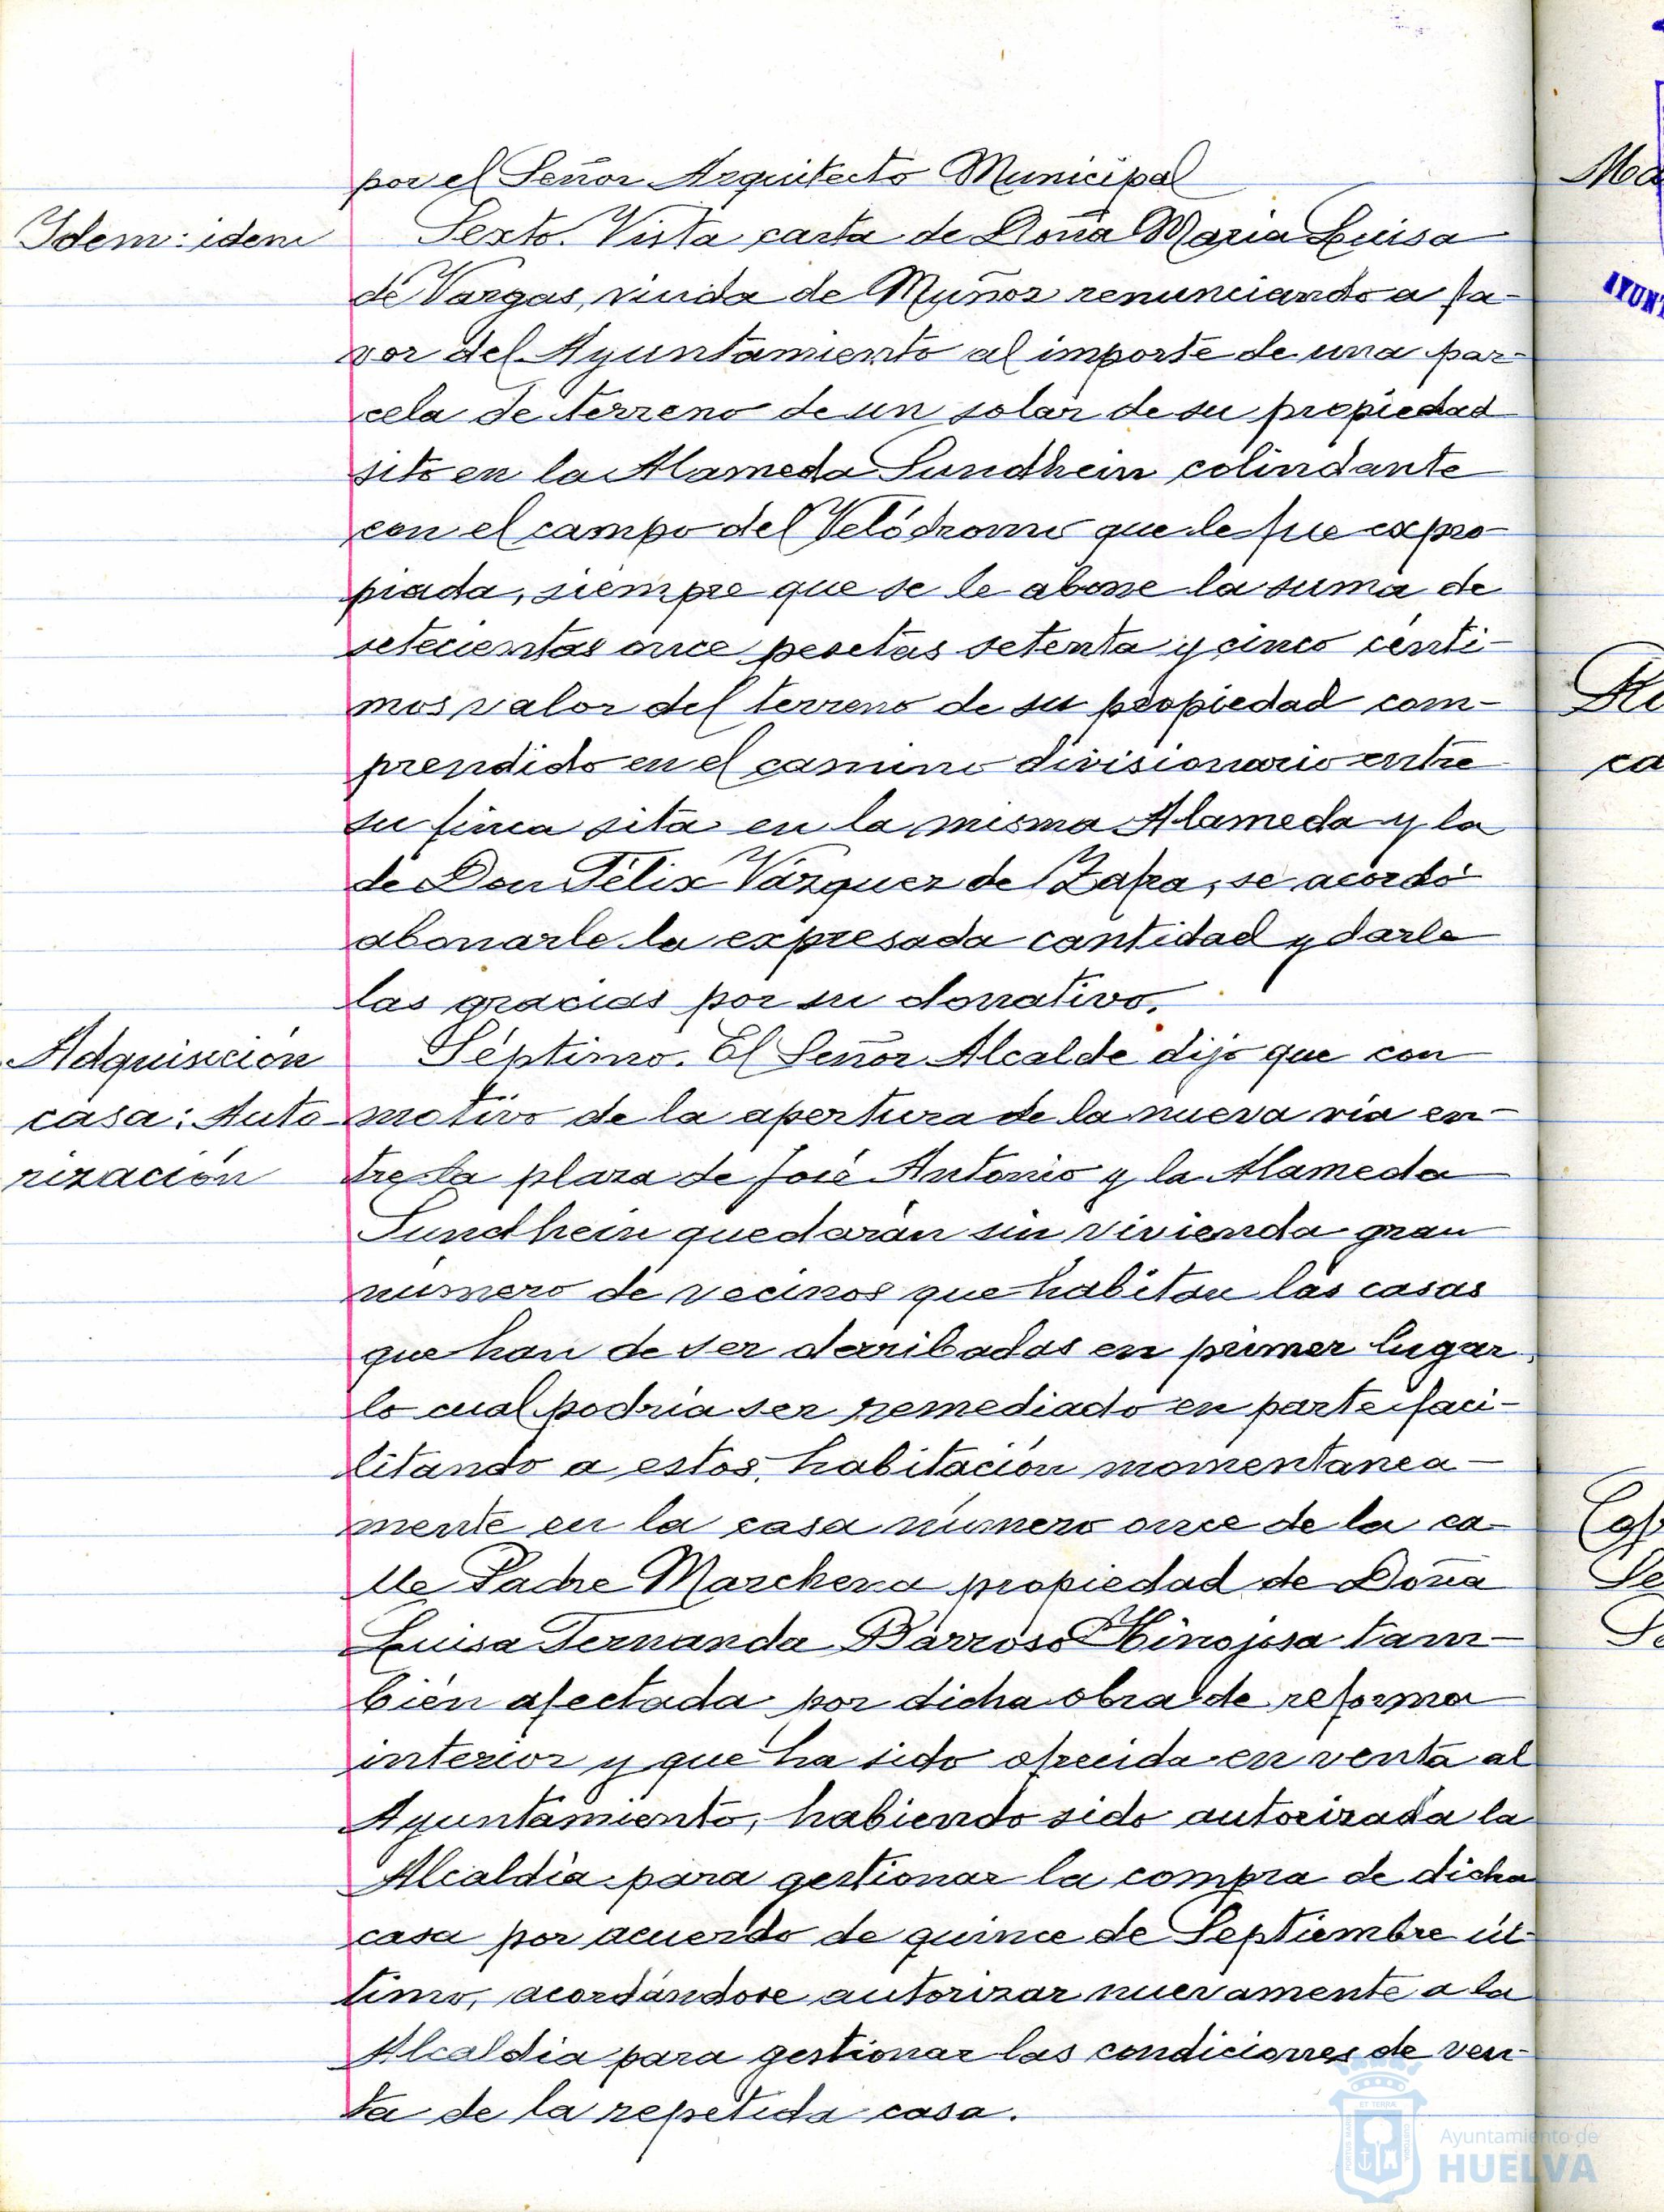 por el Señor Arquitecto Municipal
Idem: idem
Sexto. Vista carta de Doña Maria Luisa
de Vargas, viuda de Muñoz renunciando a fa-
vor del Ayuntamiento al importe de una par-
cela de terreno de un solar de su propiedad
sito en la Alameda Sundhein colindante
con el campo del Velódromo que le fue expro-
piada, siempre que se le abone la suma de
setecientas once pesetas setenta y cinco centi-
mos valor del terreno de su propiedad com-
prendido en el camino divisionario entre
su finca sita en la misma Alameda y la
de Don Félix Vázquez de Zafra, se acordó
abonarle la expresada cantidad y darle
las gracias por su donativo.
Adquisición
casa: Auto-
rización
Séptimo. El Señor Alcalde dijo que con
motivo de la apertura de la nueva vía en-
tre la plaza de José Antonio y la Alameda
Sundhein quedarán sin vivienda gran
número de vecinos que habitan las casas
que han de ser derribadas en primer lugar,
lo cual podría ser remediado en parte faci-
litando a estos, habitación momentanea-
mente en la casa número once de la ca-
lle Padre Marchena propiedad de Doña
Luisa Fernanda Barroso Hinojosa tam-
bién afectada por dicha obra de reforma
interior y que ha sido ofrecida en venta al
Ayuntamiento, habiendo sido autorizada la
Alcaldía para gestionar la compra de dicha
casa por acuerdo de quince de Septiembre úl-
timo, acordándose autorizar nuevamente a la
Alcaldia para gestionar las condiciones de ven-
ta de la repetida casa.
Ayuntamiento de
HUELVA